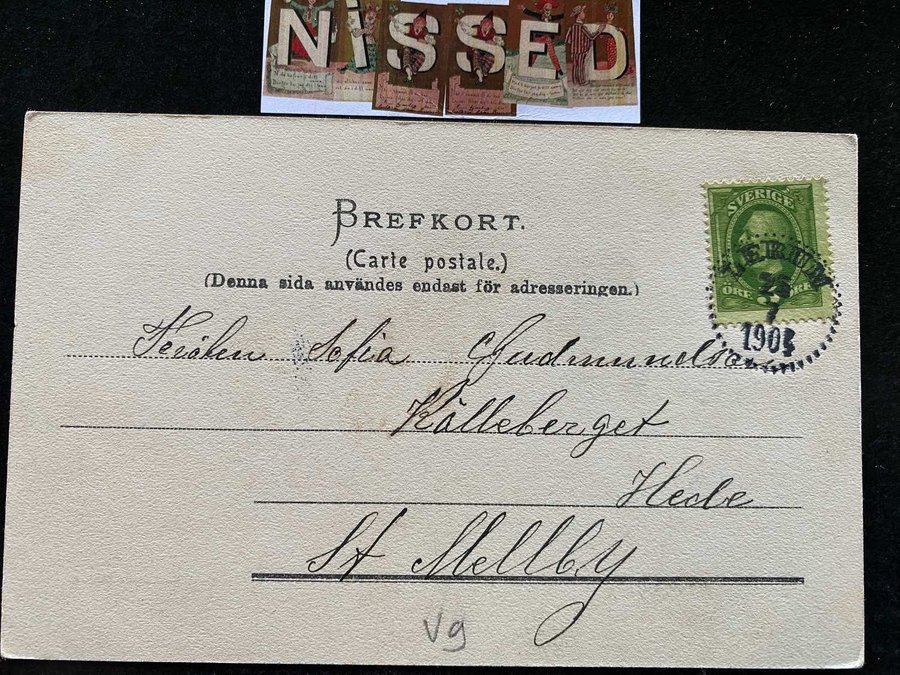 NISSED
BREFKORT.
(Carte postale.)
(Denna sida användes endast för adresseringen.)
SVERIGE
ÖRE ÖRE
1903
Fröken Sofia Gudmundson
Källeberget
Hede
St Mellby
Vg